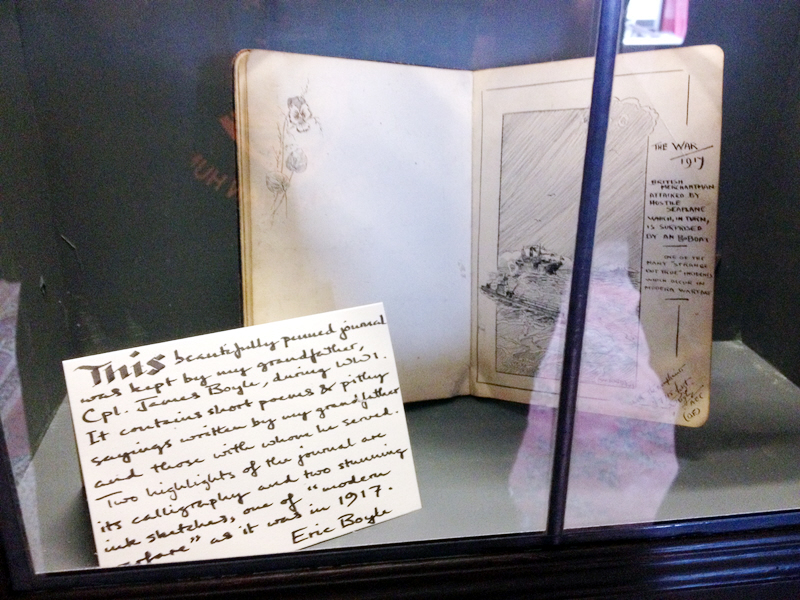 This beautifully penned journal
was kept by my grandfather,
Cpl. James Boyle, during WW1.
It contains short poems & pithy
sayings written by my grandfather
and those with whom he served.
Two highlights of the journal are
its calligraphy and two stunning
ink sketches, one of "modern
as it was in 1917.
Eric Boyle
THE WAR
1917
BRITISH
MERCHANTMAN
ATTACKED BY
HOSTILE
SEAPLANE
WHICH, IN TURN,
IS SURPRISED
BY AN
ONE OF THE
MANY "STRANGE
BUT TRUE" INCIDENTS
WHICH OCCUR IN
MODERN WARFARE